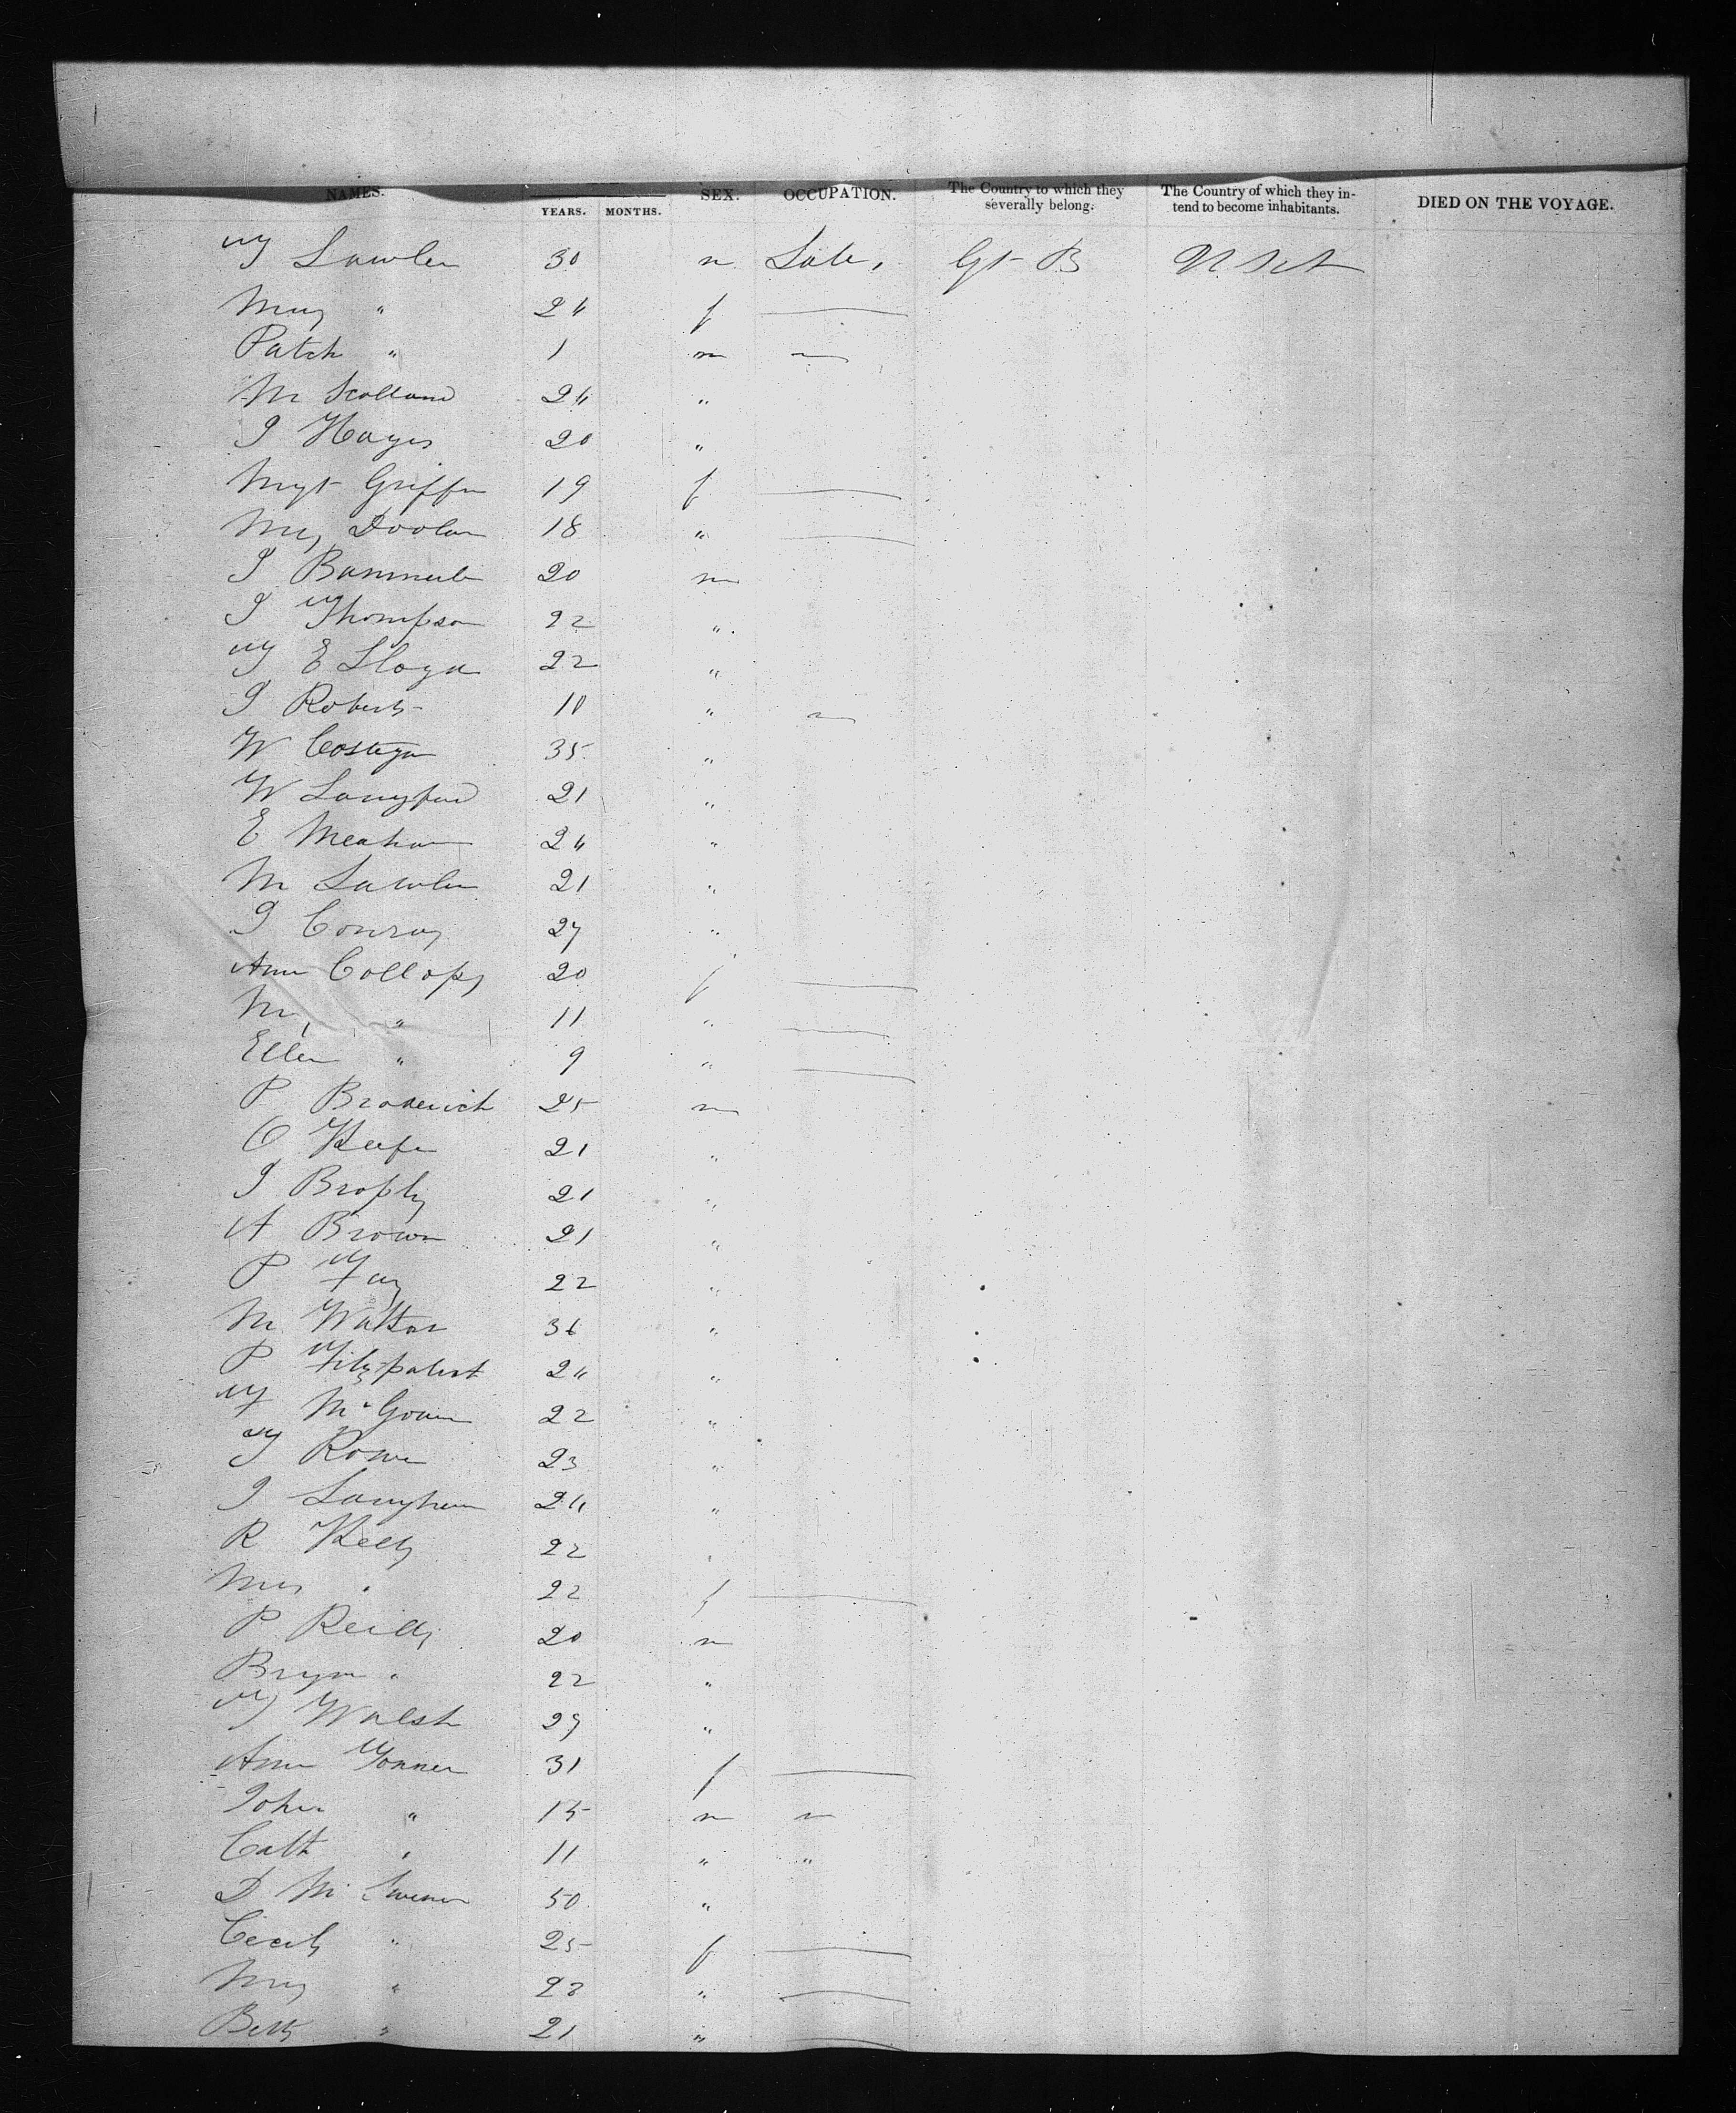 NAMES. SEX. OCCUPATION. The Country to which they severally belong. The Country of which they intend to become inhabitants. DIED ON THE VOYAGE.
YEARS. MONTHS.
T Lawler 30 m Lab, Gt B U Sts
Mary " 24 f
Patck " 1 m
M Scolland 24 "
J Hayes 20 "
Mgt Griffin 19 f
Mary Doolan 18 "
J 20 m
J Thompson 22 "
T E Lloyd 22 "
J Roberts 10 "
W Costegan 35 "
W Langford 21 "
E Meahan 24 "
M Lawler 21 "
J Conroy 27 "
Ann Collopy 20 f
M " 11 "
Ellen " 9 "
P Broderick 25 m
O Keefe 21 "
J Brophy 21 "
A Brown 21 "
P Fay 22 "
M Walker 36 "
P Fitzpatrick 24 "
F McGowan 22 "
T Rowe 23 "
J Langhan 24 "
R Kelly 22 "
Mary " 22 f
P Reilly 20 m
Bryan " 22 "
T Walsh 27 "
Ann Tonner 31 f
John " 15 m
Cath " 11 " "
D McSweeney 50 "
Cecily " 25 f
Mary " 23 "
Betty " 21 "